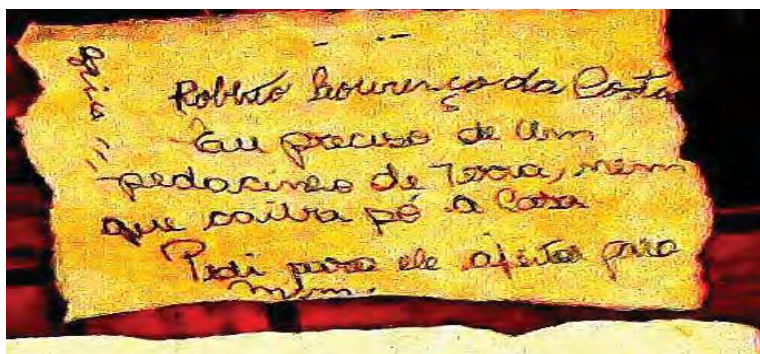 Robbto Lourenço da Costa
Eu preciso de um
pedacineo de Terra, nem
que só a Casa
Pedi para ele ajeita para
mim.